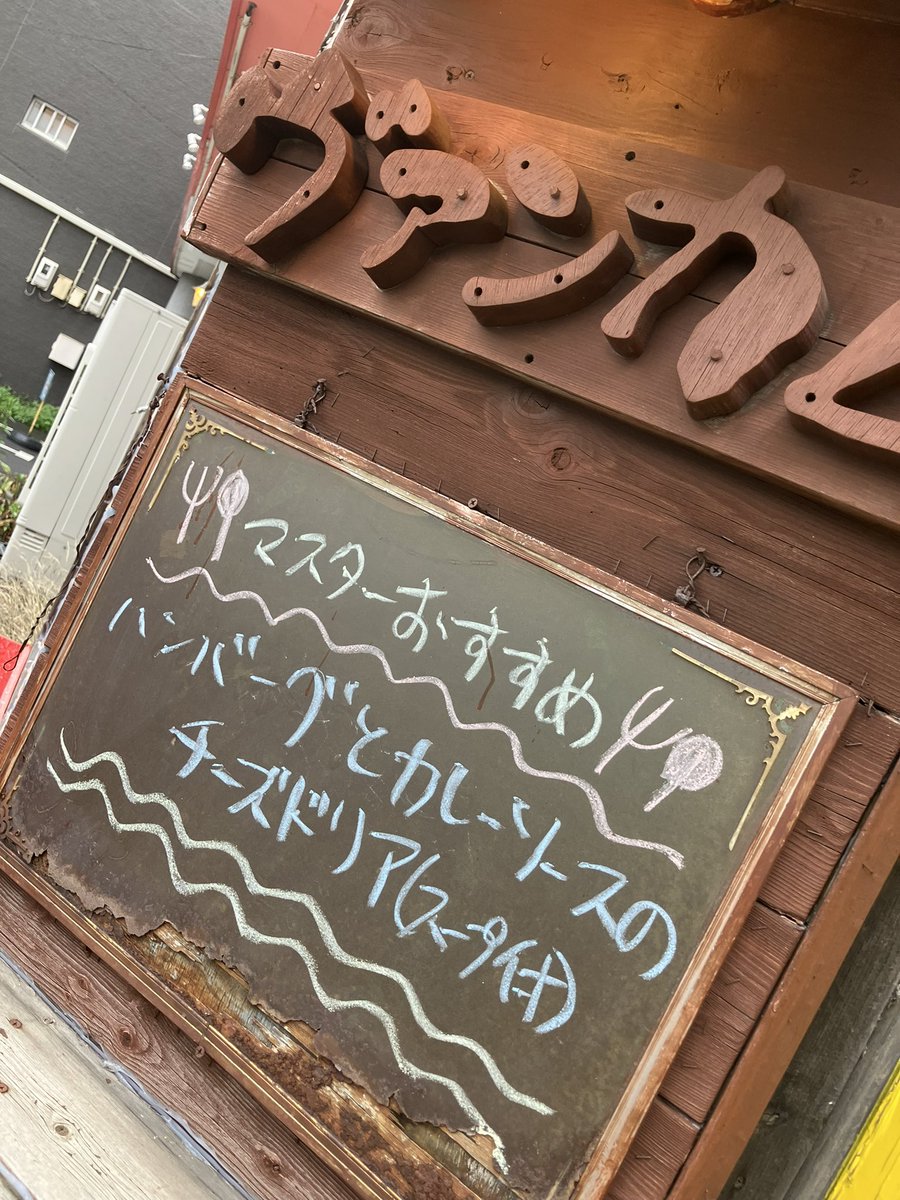 ヴァンカム
マスターおすすめ
ハンバーグとカレーソースの
チーズドリア(スープ付)